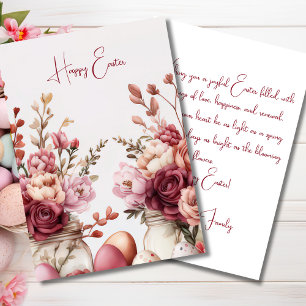 Happy Easter
you a joyful Easter filled with
of love, happiness and renewal.
heart be as light as a spring
as bright as the blooming
Easter!
Family